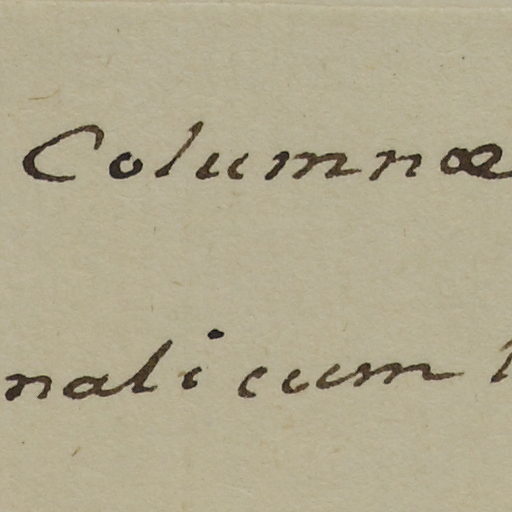 Columnæ
nali cum